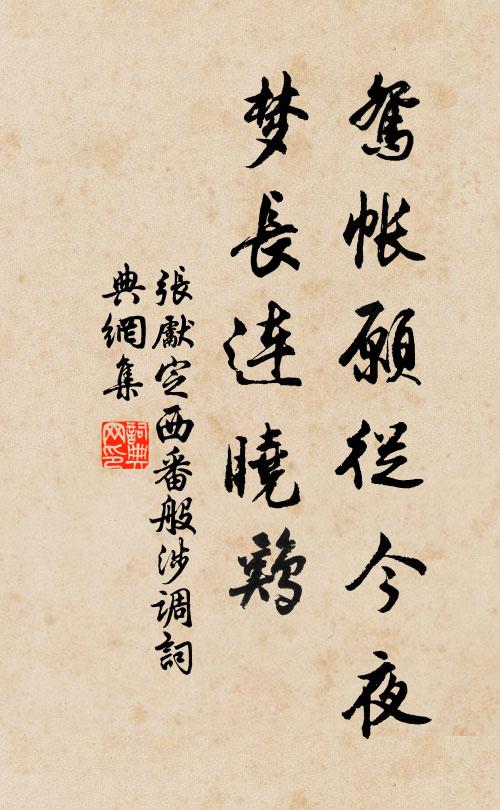 鴛帳願從今夜
梦長連曉鷄
張獻定西番般涉调詞
典網集
詞典
网印